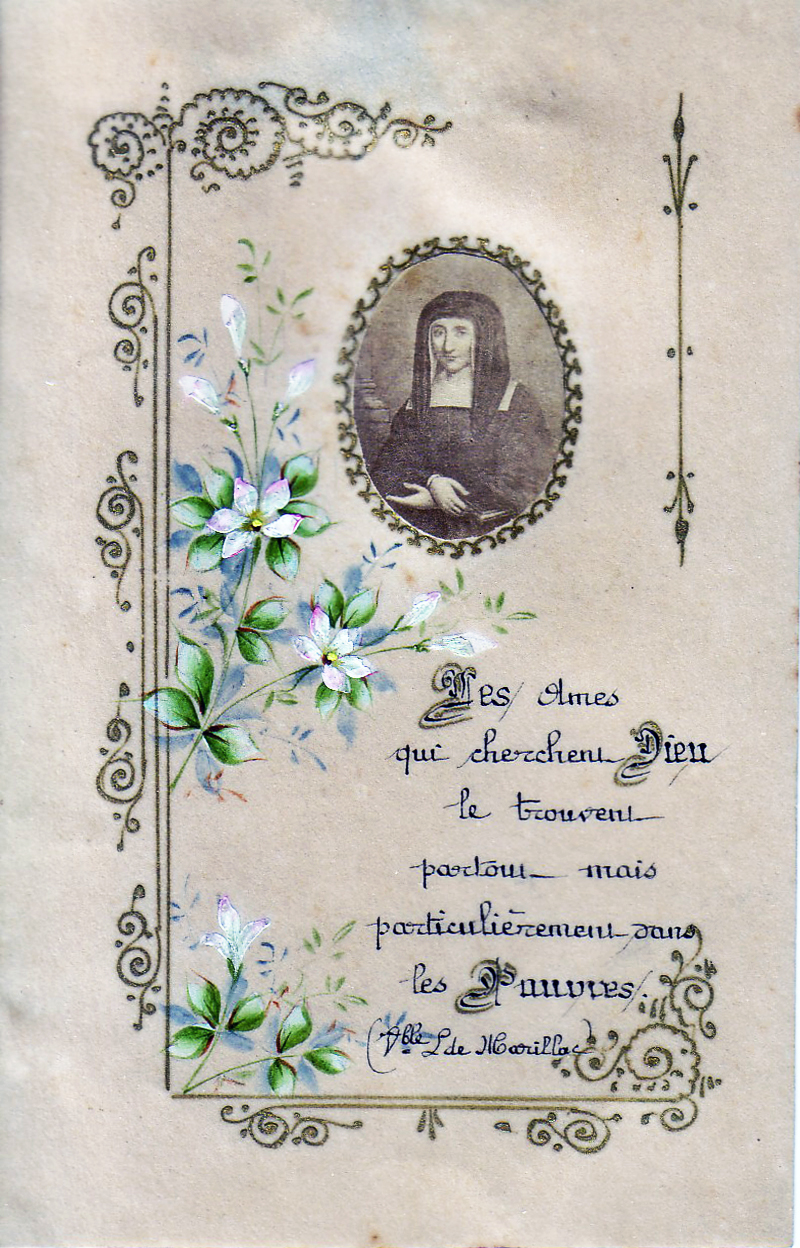 Les Ames
qui cherchent Dieu
le trouvent
partout mais
particulièrement dans
les Pauvres.
(Vble L de Marillac)